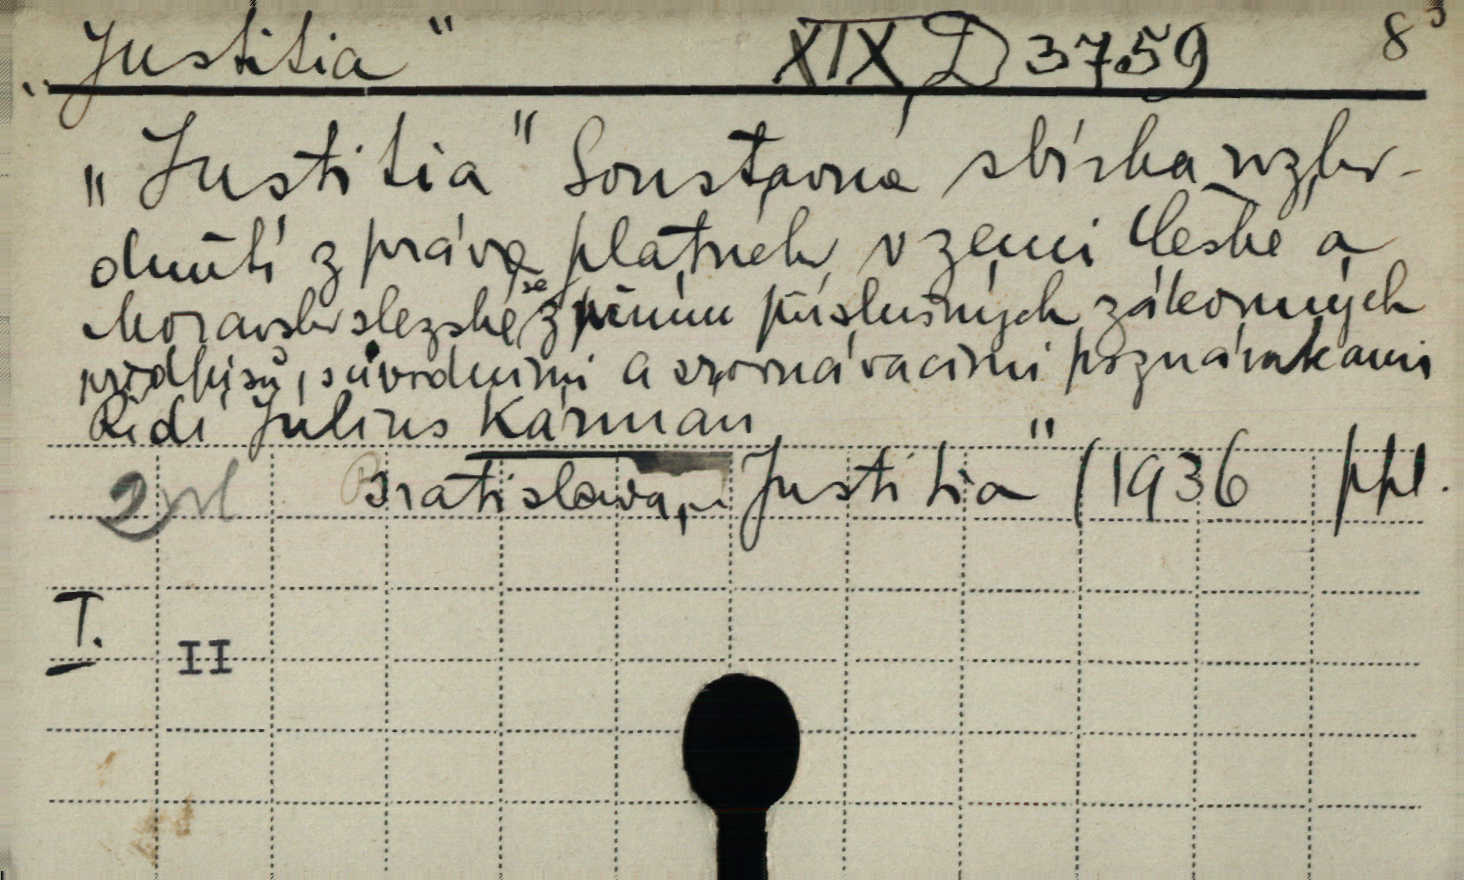 „Justitia" XIX D 3759 8°
„Justitia" Soustavná sbírka rozho-
dnutí z práva platných v zemi České a
Moravskoslezské se zněním příslušných zákonných
předpisů, s úvodními a srovnávacími poznámkami
Řídí Július Kármán
2 vl Bratislava, „Justitia" (1936 ppl.
T. II